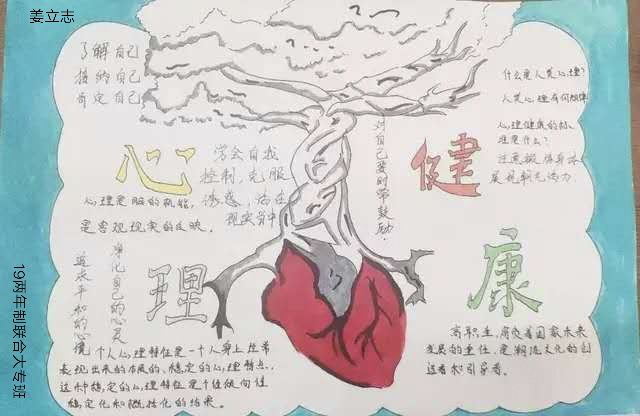 姜立志
了解自己
接纳自己
肯定自己
心
学会自我
控制,克服
诱惑,活在
现实当中
心理是脑的机能,
是客观现实的反映。
对自己要时常鼓励.
健
什么是人类心理?
人类心理有何规律
心理健康的标
准是什么?
注意
展现朝气活力.
理
净化自己的心灵
追求平和的心境
康
个人心理特征是一个人身上经常
表现出来的本质的、稳定的心理特点.
这种稳定的心理特征是个性倾向性
稳定化和概括化的结果。
高职生,肩负着国家未来
发展的重任,是潮流文化的创
造者和引导者。
19两年制联合大专班